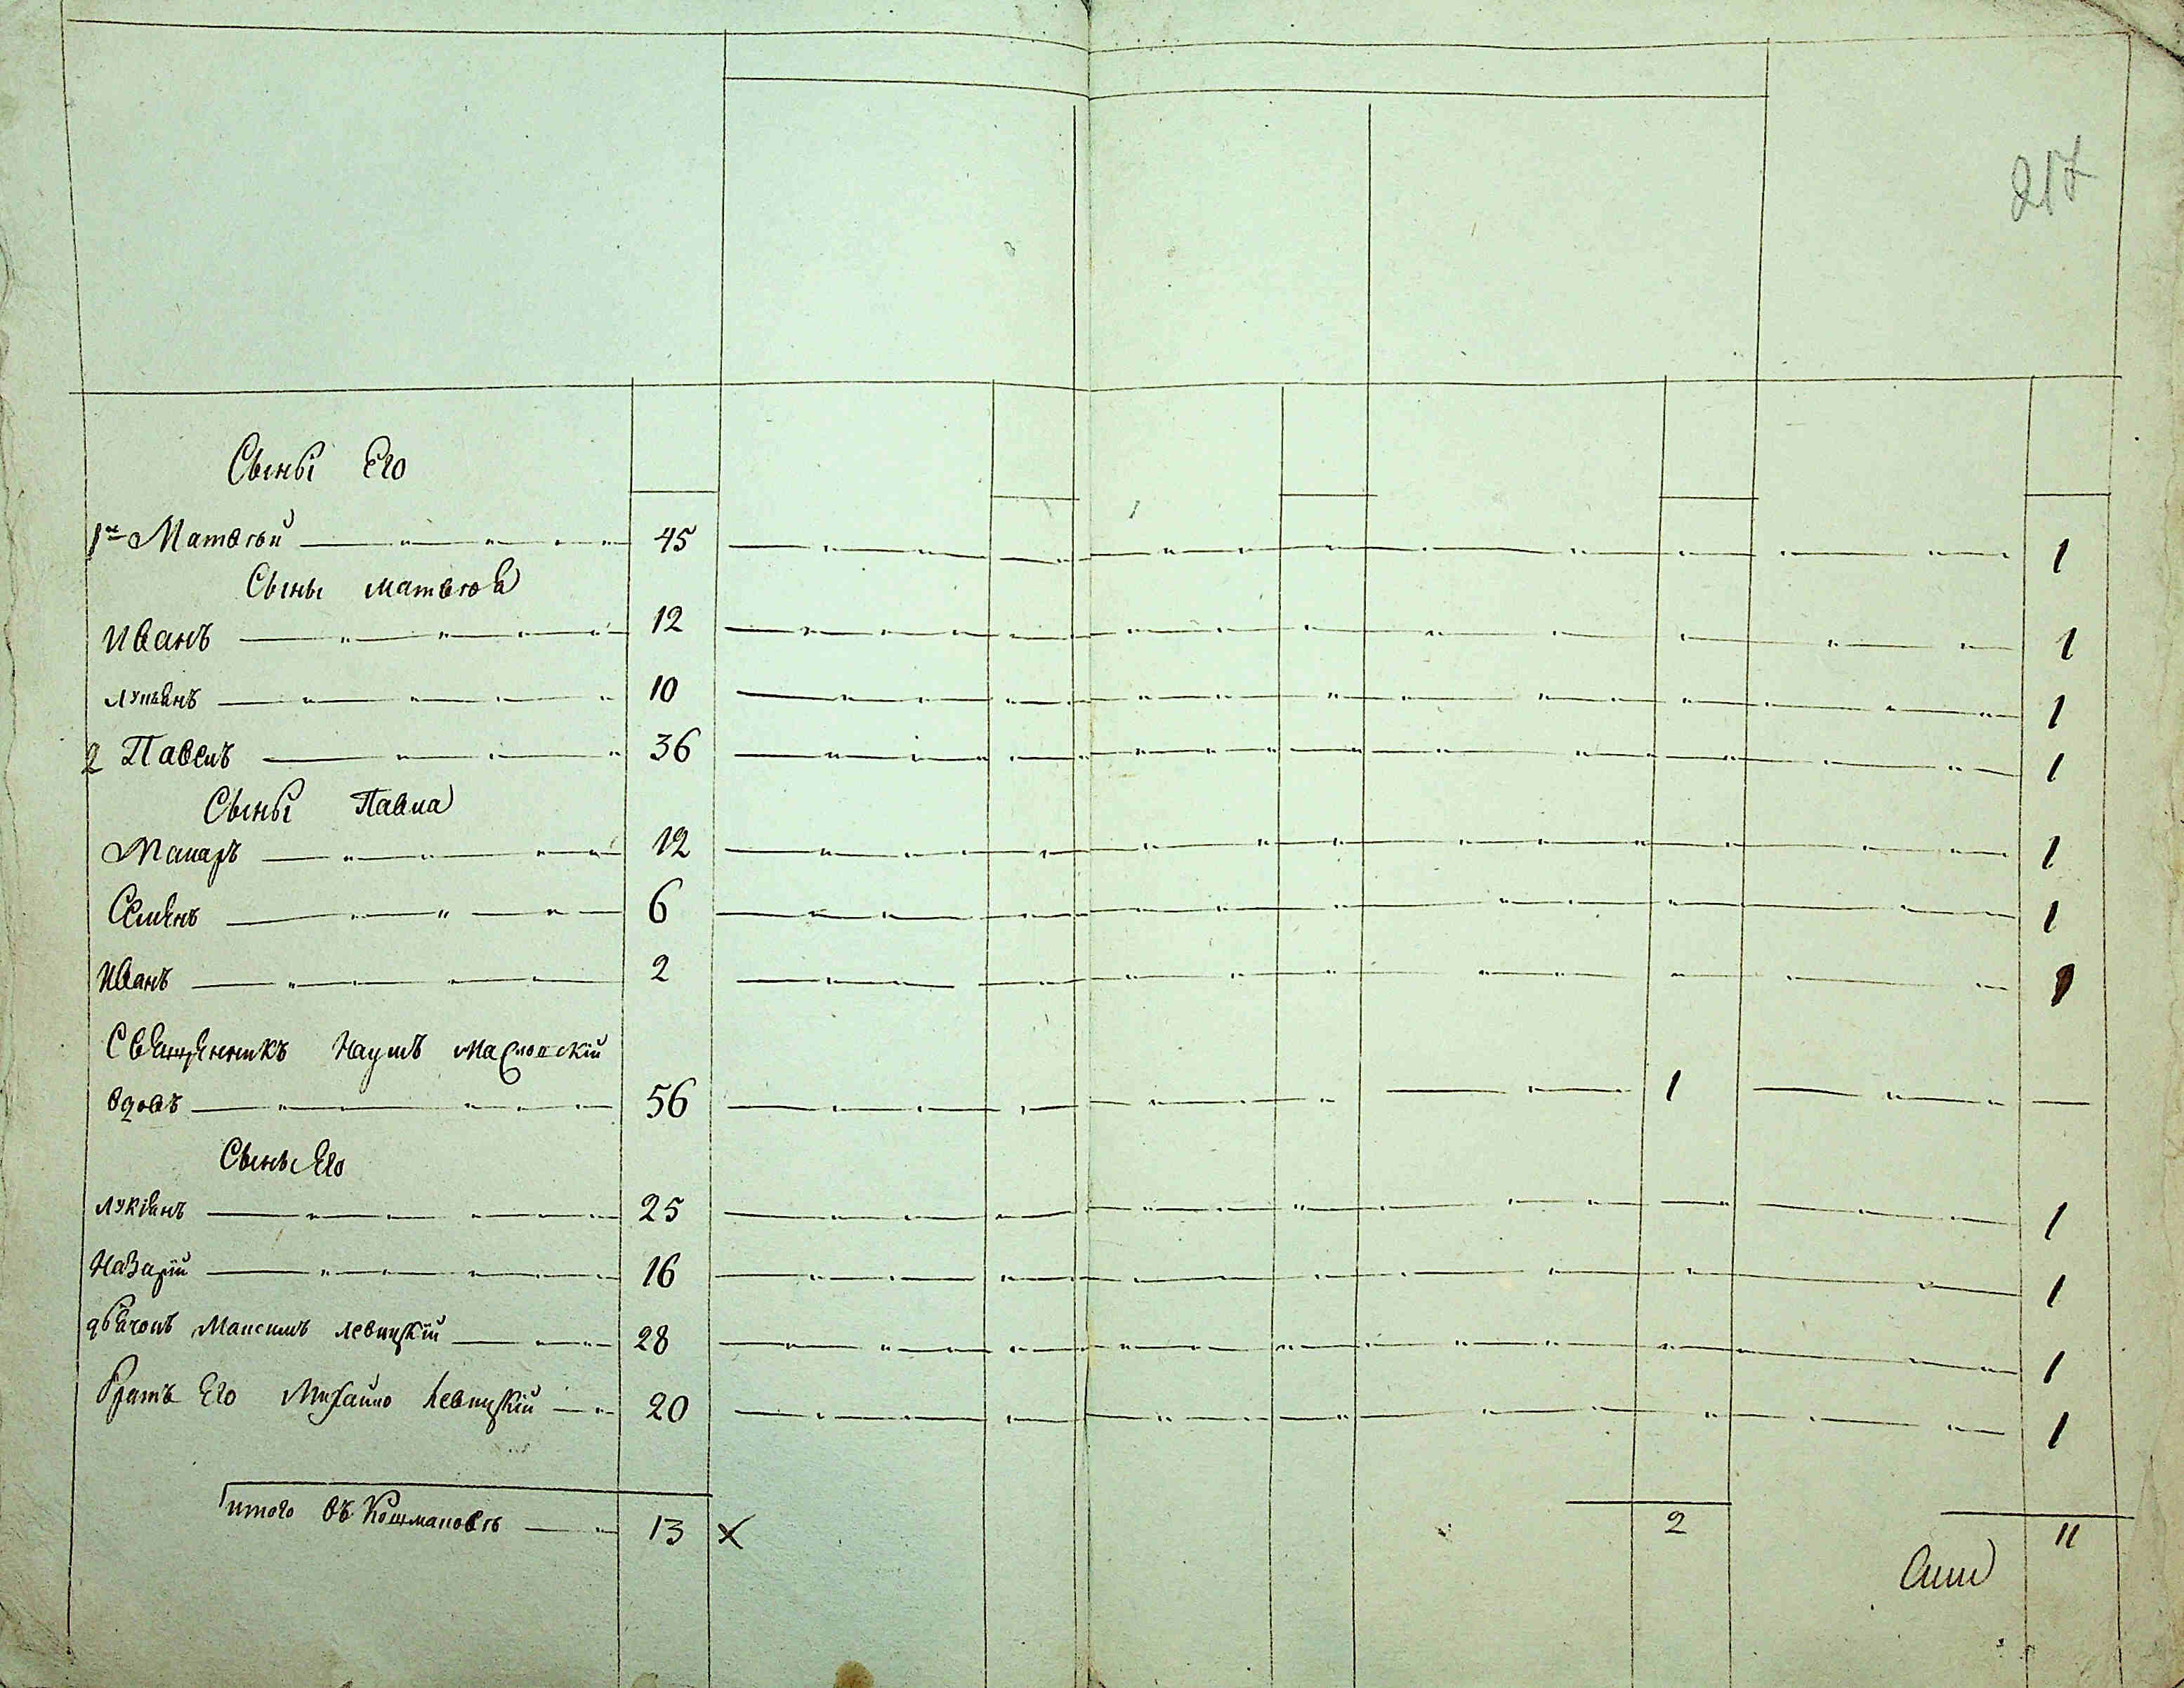 217
Сыны Его
1й Матвѣй 45 1
Сыны матвѣя
Иванъ 12 1
Лукьянъ 10 1
2 Павелъ 36 1
Сыны Павла
Макаръ 12 1
Семенъ 6 1
Иванъ 2 1
Священникъ Наумъ
вдовъ 56 1
Сыны Его
Лукіянъ 25 1
Назарій 16 1
дьячокъ Максимъ Левицкій 28 1
братъ Его Михайло Левицкій 20 1
итого въ Кошмановкѣ 13 x 2 11